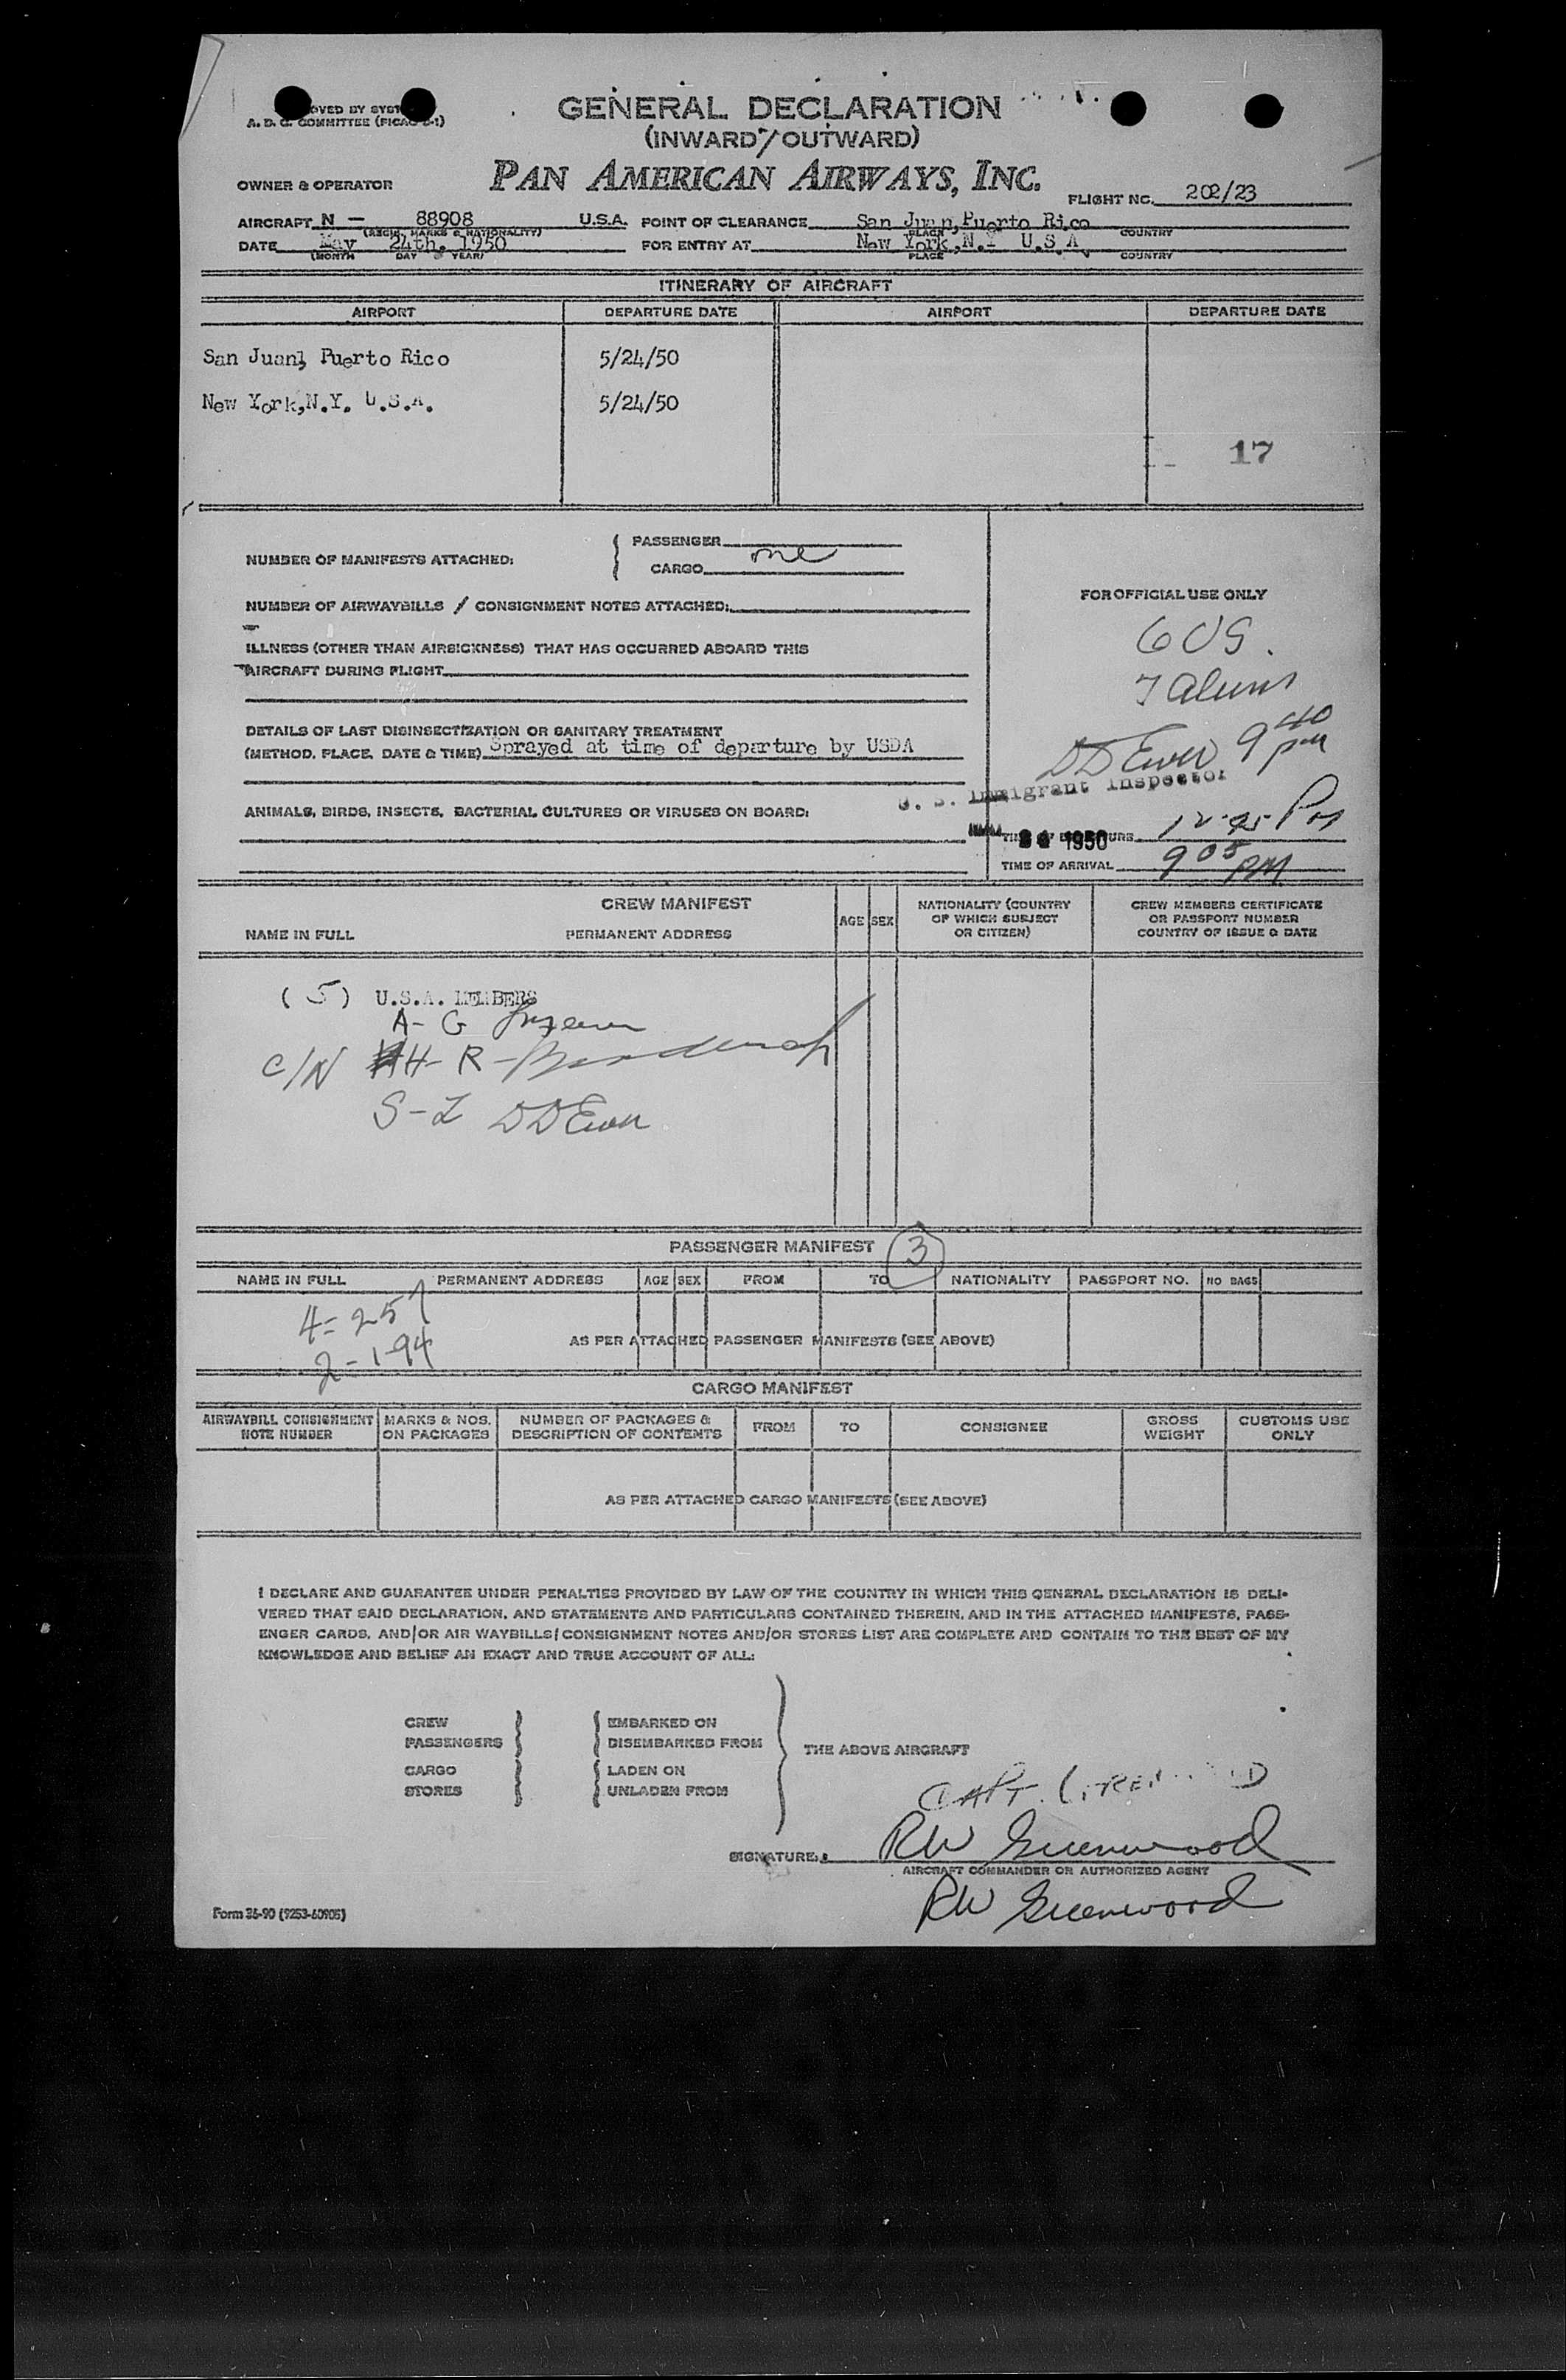 GENERAL DECLARATION
(INWARD/OUTWARD)
A. D. C. COMMITTEE (PICAO
PAN AMERICAN AIRWAYS, INC.
OWNER & OPERATOR
FLIGHT NO. 202/23
AIRCRAFT N - 88908 U.S.A. POINT OF CLEARANCE San Juan, Puerto Rico
(REGIS. MARKS & NATIONALITY) PLACE COUNTRY
DATE May 24th. 1950 FOR ENTRY AT New York, N.Y U.S.A.
(MONTH DAY YEAR) PLACE COUNTRY
ITINERARY OF AIRCRAFT
AIRPORT DEPARTURE DATE AIRPORT DEPARTURE DATE
San Juan, Puerto Rico 5/24/50
New York,N.Y. U.S.A. 5/24/50
17
NUMBER OF MANIFESTS ATTACHED: PASSENGER
CARGO one
NUMBER OF AIRWAYBILLS / CONSIGNMENT NOTES ATTACHED:
ILLNESS (OTHER THAN AIRSICKNESS) THAT HAS OCCURRED ABOARD THIS
AIRCRAFT DURING FLIGHT
DETAILS OF LAST DISINSECTIZATION OR SANITARY TREATMENT
(METHOD, PLACE, DATE & TIME) Sprayed at time of departure by USDA
ANIMALS, BIRDS, INSECTS, BACTERIAL CULTURES OR VIRUSES ON BOARD:
FOR OFFICIAL USE ONLY
6 US.
7 Aliens
DD Ewer 9 40 pm
U. S. Immigrant Inspector
1950
TIME OF ARRIVAL 9 05 PM
CREW MANIFEST
NAME IN FULL PERMANENT ADDRESS AGE SEX NATIONALITY (COUNTRY OF WHICH SUBJECT OR CITIZEN) CREW MEMBERS CERTIFICATE OR PASSPORT NUMBER COUNTRY OF ISSUE & DATE
(5) U.S.A. MEMBERS
A- G
C/N H- R-
S-Z DD Ewer
PASSENGER MANIFEST 3
NAME IN FULL PERMANENT ADDRESS AGE SEX FROM TO NATIONALITY PASSPORT NO. NO BAGS
4= 257
2-194
AS PER ATTACHED PASSENGER MANIFESTS (SEE ABOVE)
CARGO MANIFEST
AIRWAYBILL CONSIGNMENT NOTE NUMBER MARKS & NOS. ON PACKAGES NUMBER OF PACKAGES & DESCRIPTION OF CONTENTS FROM TO CONSIGNEE GROSS WEIGHT CUSTOMS USE ONLY
AS PER ATTACHED CARGO MANIFESTS (SEE ABOVE)
I DECLARE AND GUARANTEE UNDER PENALTIES PROVIDED BY LAW OF THE COUNTRY IN WHICH THIS GENERAL DECLARATION IS DELI-
VERED THAT SAID DECLARATION, AND STATEMENTS AND PARTICULARS CONTAINED THEREIN, AND IN THE ATTACHED MANIFESTS, PASS-
ENGER CARDS, AND/OR AIR WAYBILLS/CONSIGNMENT NOTES AND/OR STORES LIST ARE COMPLETE AND CONTAIN TO THE BEST OF MY
KNOWLEDGE AND BELIEF AN EXACT AND TRUE ACCOUNT OF ALL:
CREW EMBARKED ON
PASSENGERS DISEMBARKED FROM
THE ABOVE AIRCRAFT
CARGO LADEN ON
STORES UNLADEN FROM
CAPT.
SIGNATURE: RW Greenwood
AIRCRAFT COMMANDER OR AUTHORIZED AGENT
RW Greenwood
Form 36-90 (9253-60905)